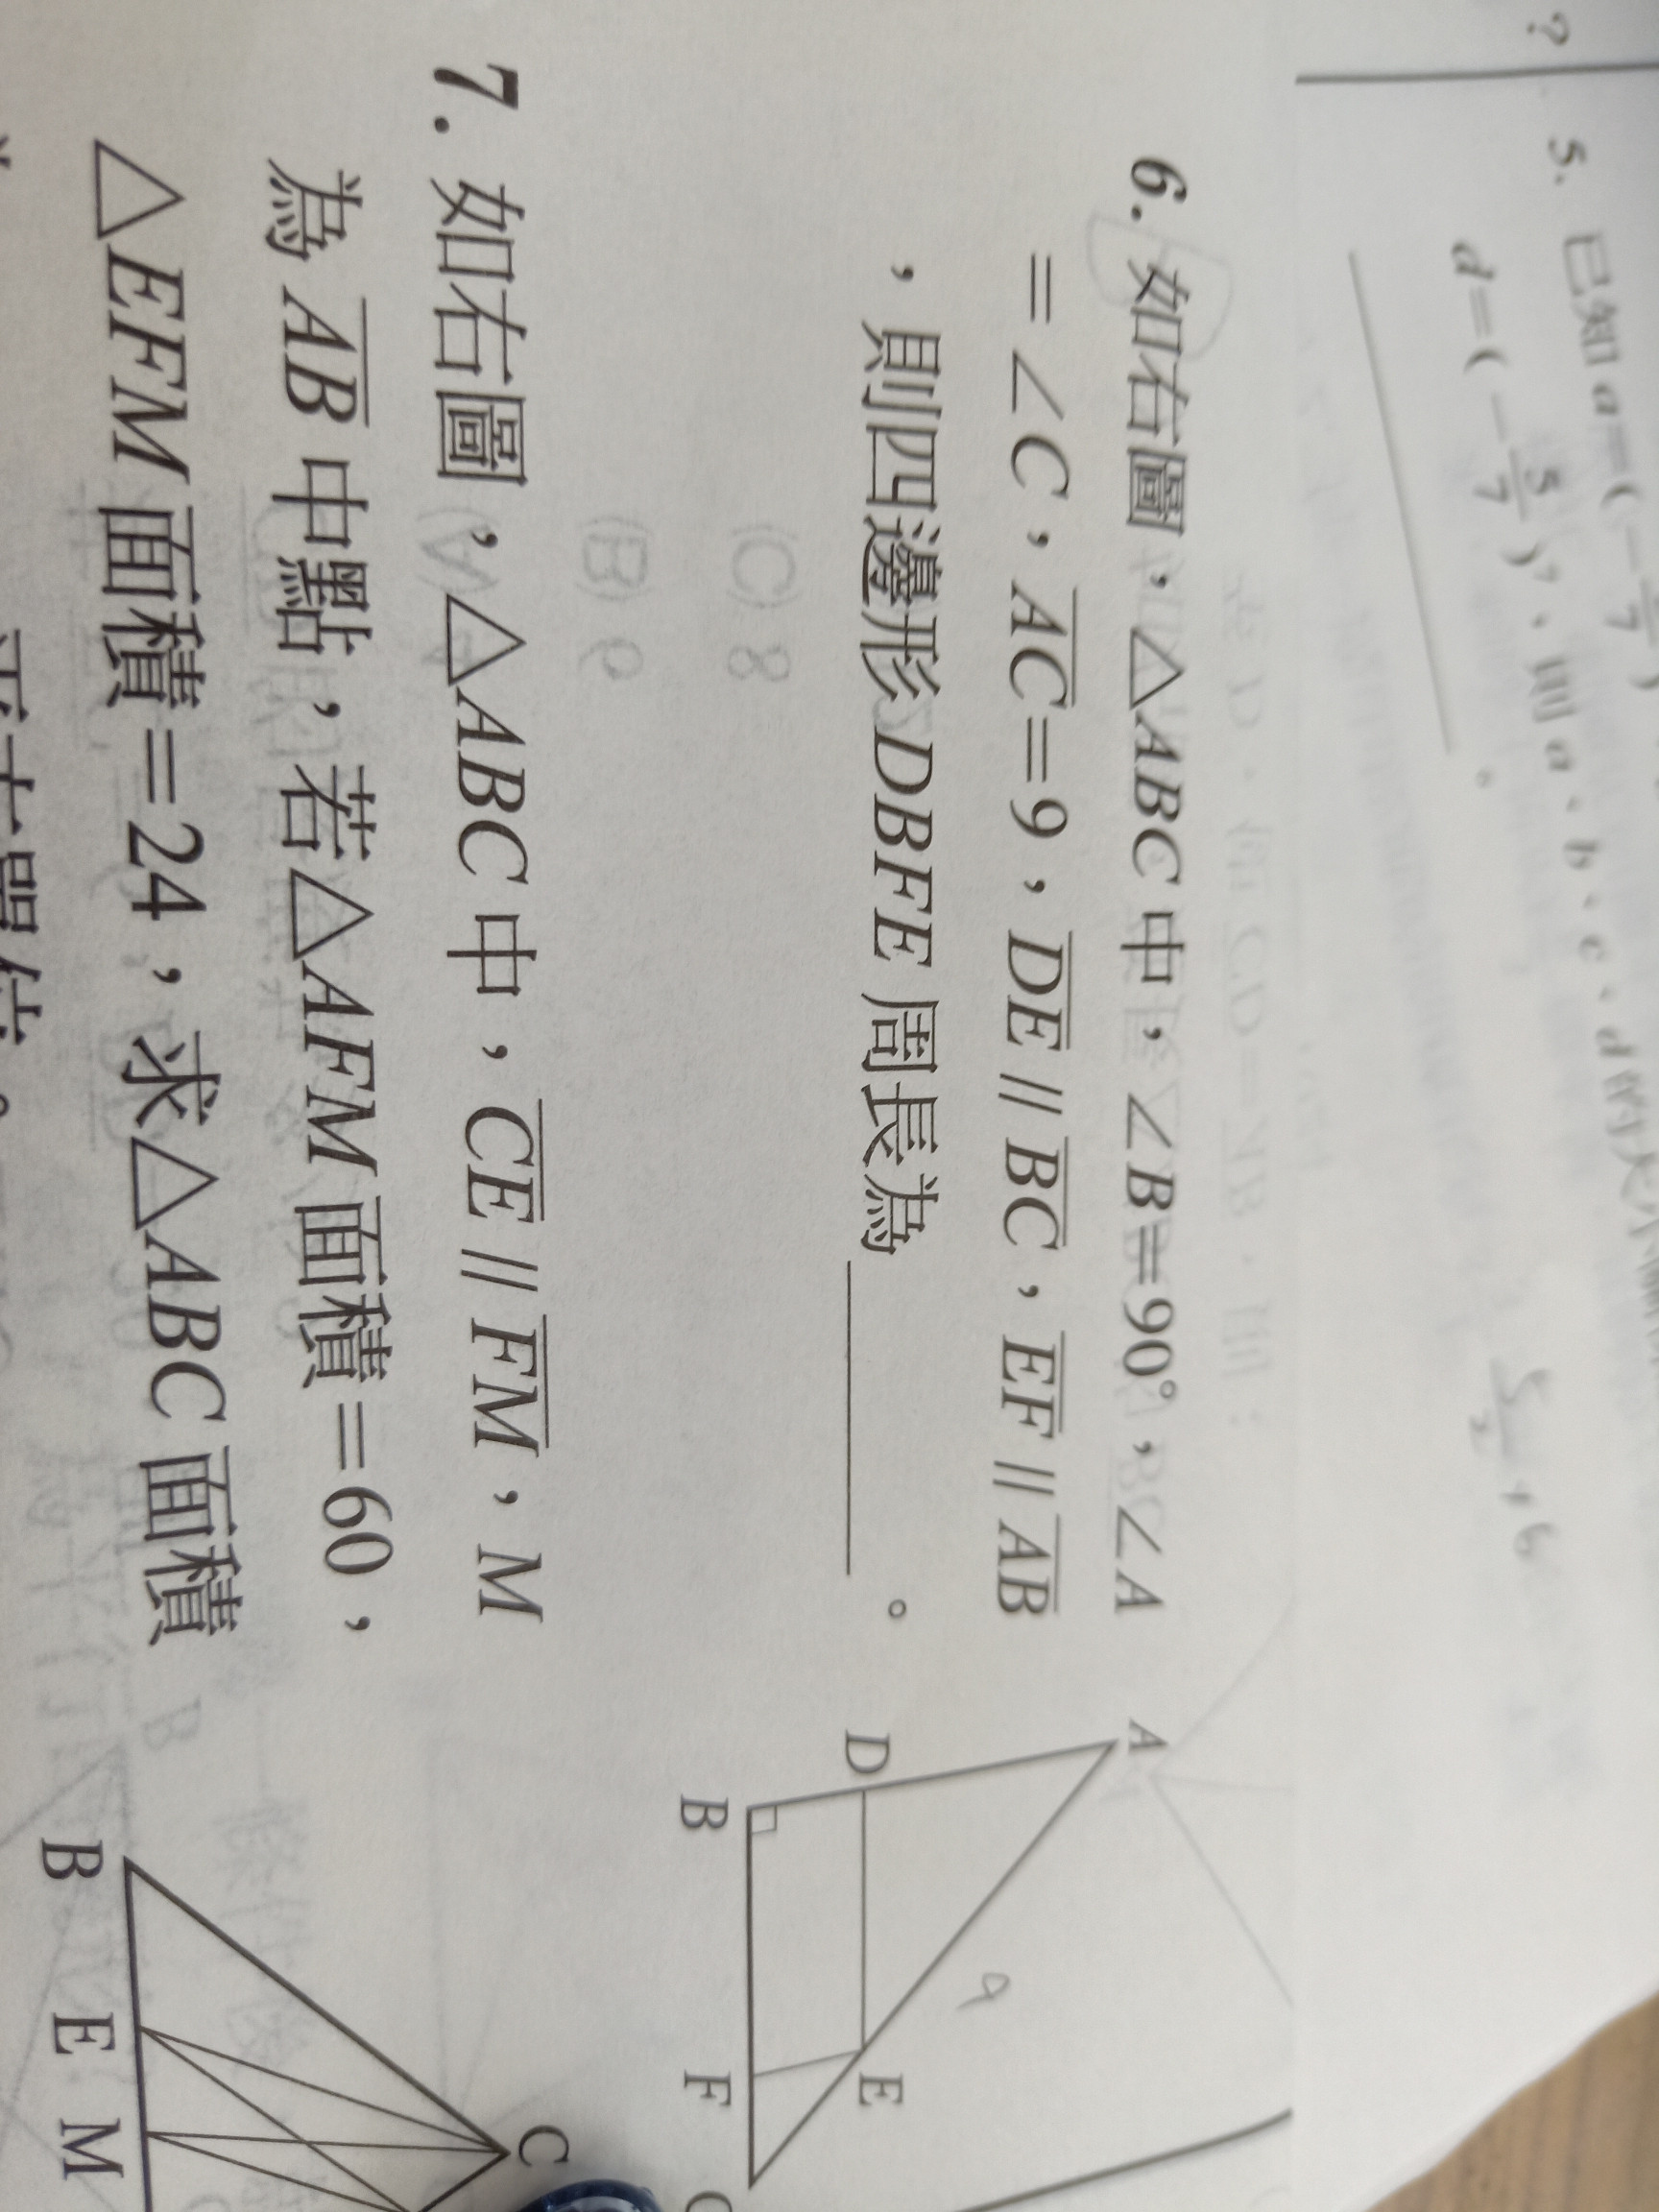 5. 已知 a=(-
d=(-5/7)⁷，則 a、b、c、d 的大小
。
6. 如右圖，△ABC 中，∠B=90°，∠A
=∠C，AC=9，DE // BC，EF // AB
，則四邊形 DBFE 周長為＿＿＿＿。
A
D
B
9
E
F
C
7. 如右圖，△ABC 中，CE // FM，M
為 AB 中點，若△AFM 面積=60，
△EFM 面積=24，求△ABC 面積
平方單位。
C
B
E
M